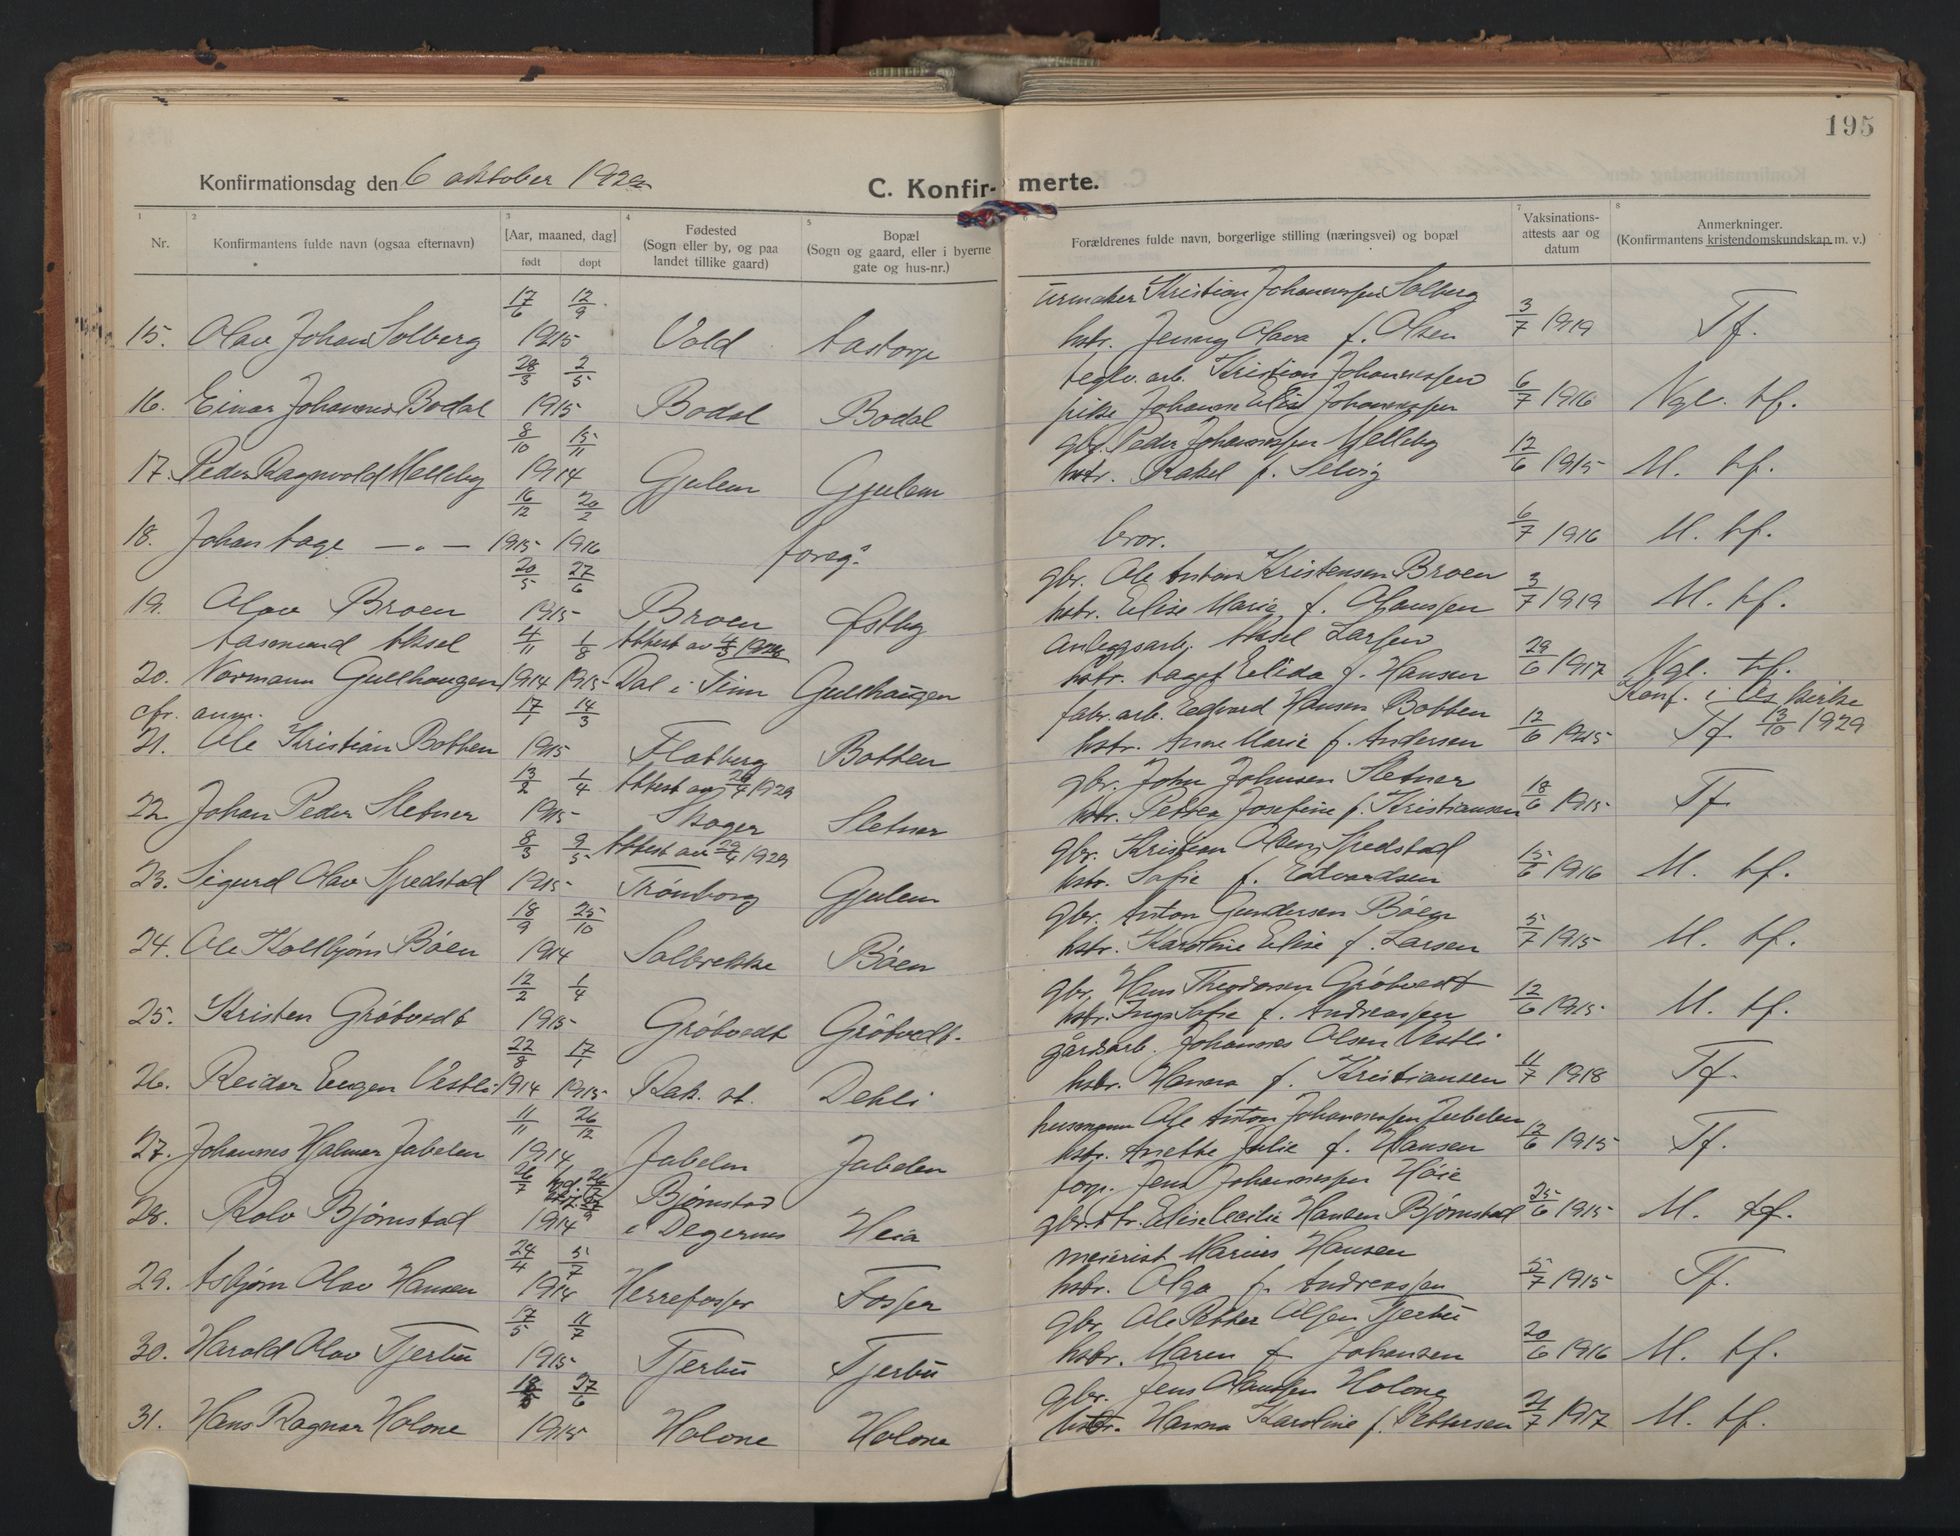 195
Konfirmationsdag den 6 oktober 1929
C. Konfir- merte.
1 2 3 4 5 6 7 8
Nr.
Konfirmantens fulde navn (ogsaa efternavn)
[Aar, maaned, dag]
født døpt
Fødested
(Sogn eller by, og paa
landet tillike gaard)
Bopæl
(Sogn og gaard, eller i byerne
gate og hus-nr.)
Forældrenes fulde navn, borgerlige stilling (næringsvei) og bopæl
Vaksinations-
attests aar og
datum
Anmerkninger.
(Konfirmantens kristendomskundskap m. v.)
17/6 12/9 urmaker Kristian Johannessen Solberg
15. Olav Johan Solberg 1915 Vold Aastorp hstr. Jenny Olava f. Olsen 3/7 1919 Tf.
28/3 2/5 teglv. arb. Kristian Johannessen
16. Einar Johannes Bodal 1915 Bodal Bodal pike Johanne Elise Johannessen 6/7 1916 Ngl. tf.
8/10 15/11 gbr. Peder Johannessen Melleby
17. Peder Ragnvold Melleby 1914 Gjulem Gjulem hstr. Rakel f. Selvig 12/6 1915 M. tf.
16/12 20/2
18. Johan Aage — " — 1915 1916 foreg. bror. 6/7 1916 M. tf.
20/5 27/6 gbr. Ole Anton Kristensen Broen
19. Olav Broen 1915 Broen Østby hstr. Elise Marie f. Olaussen 3/7 1919 M. tf.
Aasmund Aksel 4/11 1/8 Attest av 4/3 1928 anleggsarb. Aksel Larsen
20. Normann Gullhaugen 1914 1915 Dal i Tinn Gullhaugen hstr. Aagot Elida f. Hansen 29/6 1917 Ngl. tf.
cfr. anm. 17/1 14/3 fabr. arb. Edvard Hansen Botten Konf. i Os kirke
21. Ole Kristian Botten 1915 Flatberg Botten hstr. Anne Marie f. Andersen 12/6 1915 Tf. 13/10 1929
13/2 1/4 Attest av 24/4 1929 gbr. John Johnsen Sletner
22. Johan Peder Sletner 1915 Skoger Sletner hstr. Petrea Josefine f. Kristiansen 18/6 1915 Tf.
8/3 9/5 Attest av 29/4 1929 gbr. Kristian Olsen Spedstad
23. Sigurd Olav Spedstad 1915 Trømborg Gjulem hstr. Sofie f. Edvardsen 15/6 1916 M. tf.
18/9 25/10 gbr. Anton Gundersen Bøen
24. Ole Kolbjørn Bøen 1914 Solbrekke Bøen hstr. Karoline Elise f. Larsen 5/7 1915 M. tf.
12/2 1/4 gbr. Hans Theodorsen Grøtvedt
25. Kristen Grøtvedt 1915 Grøtvedt Grøtvedt. hstr. Inga Sofie f. Andreassen 12/6 1915 M. tf.
22/8 17/1 gårdsarb. Johannes Olsen Vestli
26. Reidar Eugen Vestli 1914 1915 Rak. st. Dehli hstr. Hanna f. Kristiansen 11/7 1918 Tf.
11/11 26/12 husmann Ole Anton Johannessen Jabelen
27. Johannes Halmar Jabelen 1914 Jabelen Jabelen hstr. Anette Julie f. Hansen 12/6 1915 Tf.
26/7 Bjørnstad forp. Jens Johannessen Høie
28. Rolv Bjørnstad 1914 i Degernes Heia gbr.dtr. Elise Cecilie Hansen Bjørnstad 25/6 1915 M. tf.
24/4 5/7 meierist Marius Hansen
29. Asbjørn Olav Hansen 1914 Herrefosser Fosser hstr. Olga f. Andreassen 5/7 1915 Tf.
17/5 11/7 gbr. Ole Petter Olsen Tjerbu
30. Harald Olav Tjerbu 1915 Tjerbu Tjerbu hstr. Maren f. Johansen 20/6 1916 M. tf.
27/6 gbr. Jens Olaussen Holone
31. Hans Ragnar Holone 1915 Holone Holone hstr. Hanna Karoline f. Pettersen 21/7 1917 M. tf.